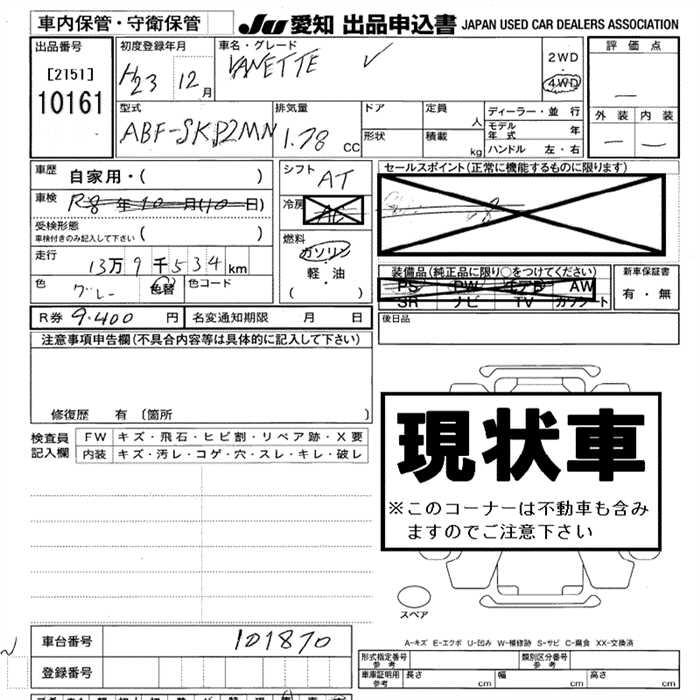 車内保管・守衛保管
JU 愛知 出品申込書 JAPAN USED CAR DEALERS ASSOCIATION
出品番号
[2151]
10161
初度登録年月
H23 12月
車名・グレード
VANETTE ✓
2WD
4WD
評価点
—
外装 内装
— —
型式
ABF-SKP2MN
排気量
1.78 cc
ドア
形状
定員 人
積載 kg
ディーラー・並行
モデル年式 年
ハンドル 左・右
車歴 自家用・( )
車検 R8年10月(10日)
受検形態
車検付きのみ記入して下さい ( )
走行
13万9千534km
色 グレー 色替 色コード
シフト AT
冷房 AC
燃料
ガソリン
軽・油
( ・ )
セールスポイント(正常に機能するものに限ります)
装備品(純正品に限り○をつけてください)
PS PW エアB AW
SR ナビ TV カワシート
新車保証書
有・無
R券 9.400 円 名変通知期限 月 日
後日品
注意事項申告欄(不具合内容等は具体的に記入して下さい)
修復歴 有 〔箇所 〕
検査員
記入欄
FW キズ・飛石・ヒビ割・リペア跡・X要
内装 キズ・汚レ・コゲ・穴・スレ・キレ・破レ
現状車
※このコーナーは不動車も含み
ますのでご注意下さい
スペア
A-キズ E-エクボ U-凹み W-補修跡 S-サビ C-腐食 XX-交換済
車台番号 101870
登録番号
形式指定番号
参考
類別区分番号
参考
車庫証明用
参考
長さ cm 幅 cm 高さ cm